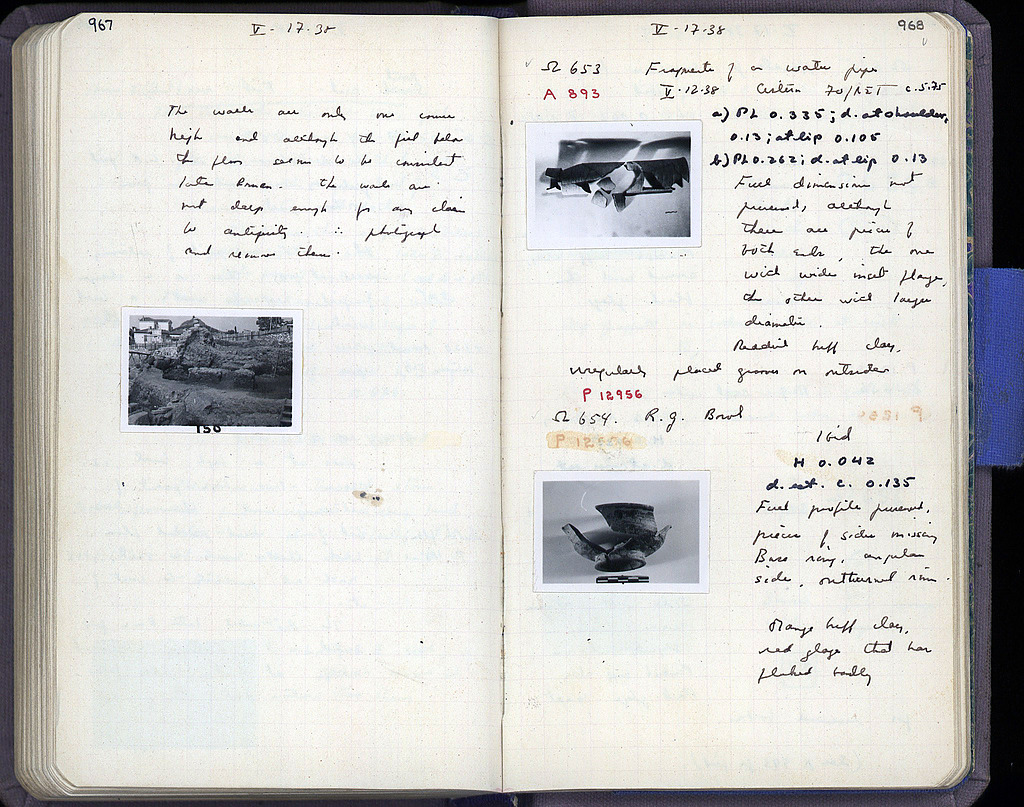 967
V - 17-38
The walls are only one course
high and although the fill below
the floor seems to be consistent
late Roman. The walls are
not deep enough for any claim
to antiquity. ∴ photograph
and remove them.
150
V - 17-38
968
Ω 653 Fragments of a water pipe
A 893 V-12-38 Cistern 70/ c. 5.75
a) PL 0.335; d. at shoulder,
0.13; at lip 0.105
b) PL 0.262; d. at lip 0.13
Full dimension not
preserved, although
there are pieces of
both ends, the one
with wide inset flange,
the other with larger
diameter.
Reddish buff clay,
irregularly placed grooves on outside
P 12956
Ω 654. R.g. Bowl
P 12556
Ibid
H 0.042
d. est. c. 0.135
Full profile preserved,
pieces of side missing
Base ring, angular
side, outturned rim.
Orange buff clay,
red glaze that has
flaked badly